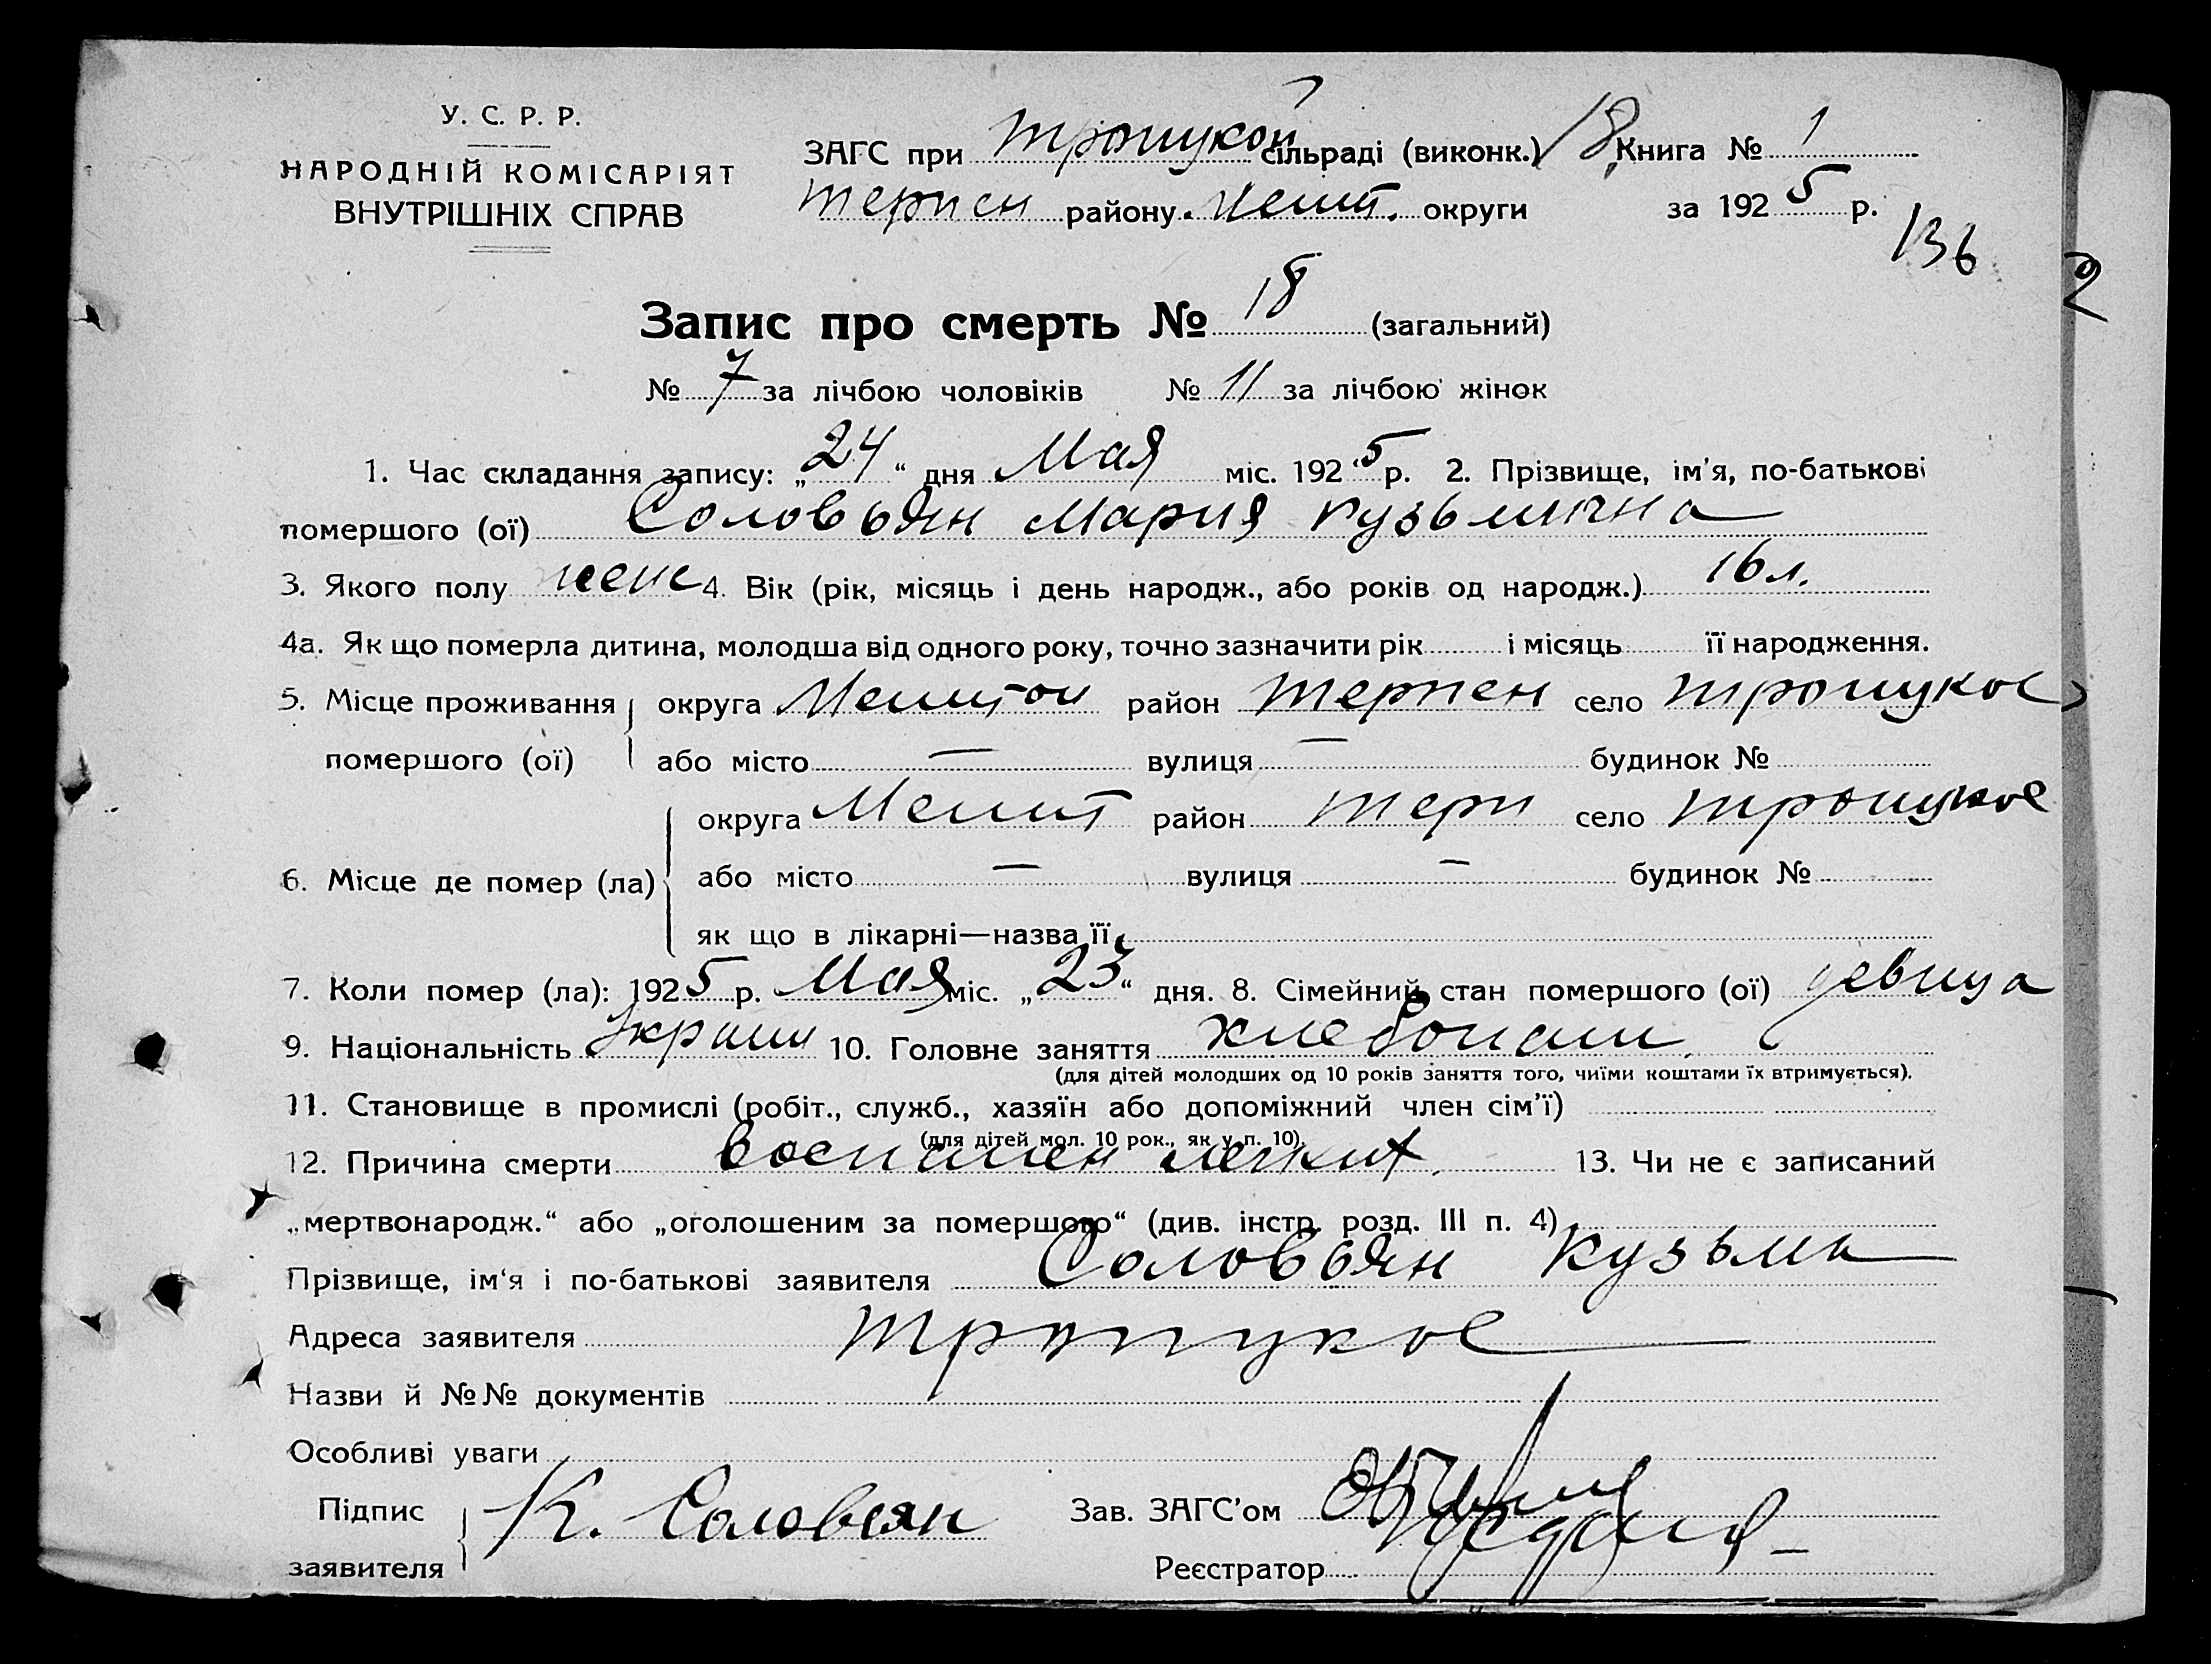 У. С. Р. Р.
НАРОДНІЙ КОМІСАРІЯТ
ВНУТРІШНІХ СПРАВ
ЗАГС при Троицкой сільраді (виконк.) 18 Книга № 1
Терпен району Мелит. округи за 1925 р.
136
2
Запис про смерть № 18 (загальний)
№ 7 за лічбою чоловіків № 11 за лічбою жінок
1. Час складання запису: „24“ дня Мая міс. 1925 р. 2. Прізвище, ім'я, по-батькові
помершого (ої) Соловьян Мария Кузьминична
3. Якого полу женс 4. Вік (рік, місяць і день народж., або років од народж.) 16 л.
4а. Як що померла дитина, молодша від одного року, точно зазначити рік і місяць її народження.
5. Місце проживання округа район Терпен село Троицкое
помершого (ої) або місто — вулиця — будинок №
округа Мелит район Терп село Троицкое
6. Місце де помер (ла) або місто — вулиця — будинок №
як що в лікарні—назва її
7. Коли помер (ла): 1925 р. Мая міс. „23“ дня. 8. Сімейний стан помершого (ої) девица
9. Національність Украин 10. Головне заняття хлебопаш.
(для дітей молодших од 10 років заняття того, чиїми коштами їх втримується).
11. Становище в промислі (робіт., служб., хазяїн або допоміжний член сім'ї)
(для дітей мол. 10 рок., як у п. 10).
12. Причина смерти воспален легких. 13. Чи не є записаний
„мертвонародж.“ або „оголошеним за помершого“ (див. інстр. розд. III п. 4)
Прізвище, ім'я і по-батькові заявителя Соловьян Кузьма
Адреса заявителя Троицкое
Назви й №№ документів
Особливі уваги
Підпис К. Соловьян Зав. ЗАГС'ом
заявителя Реєстратор